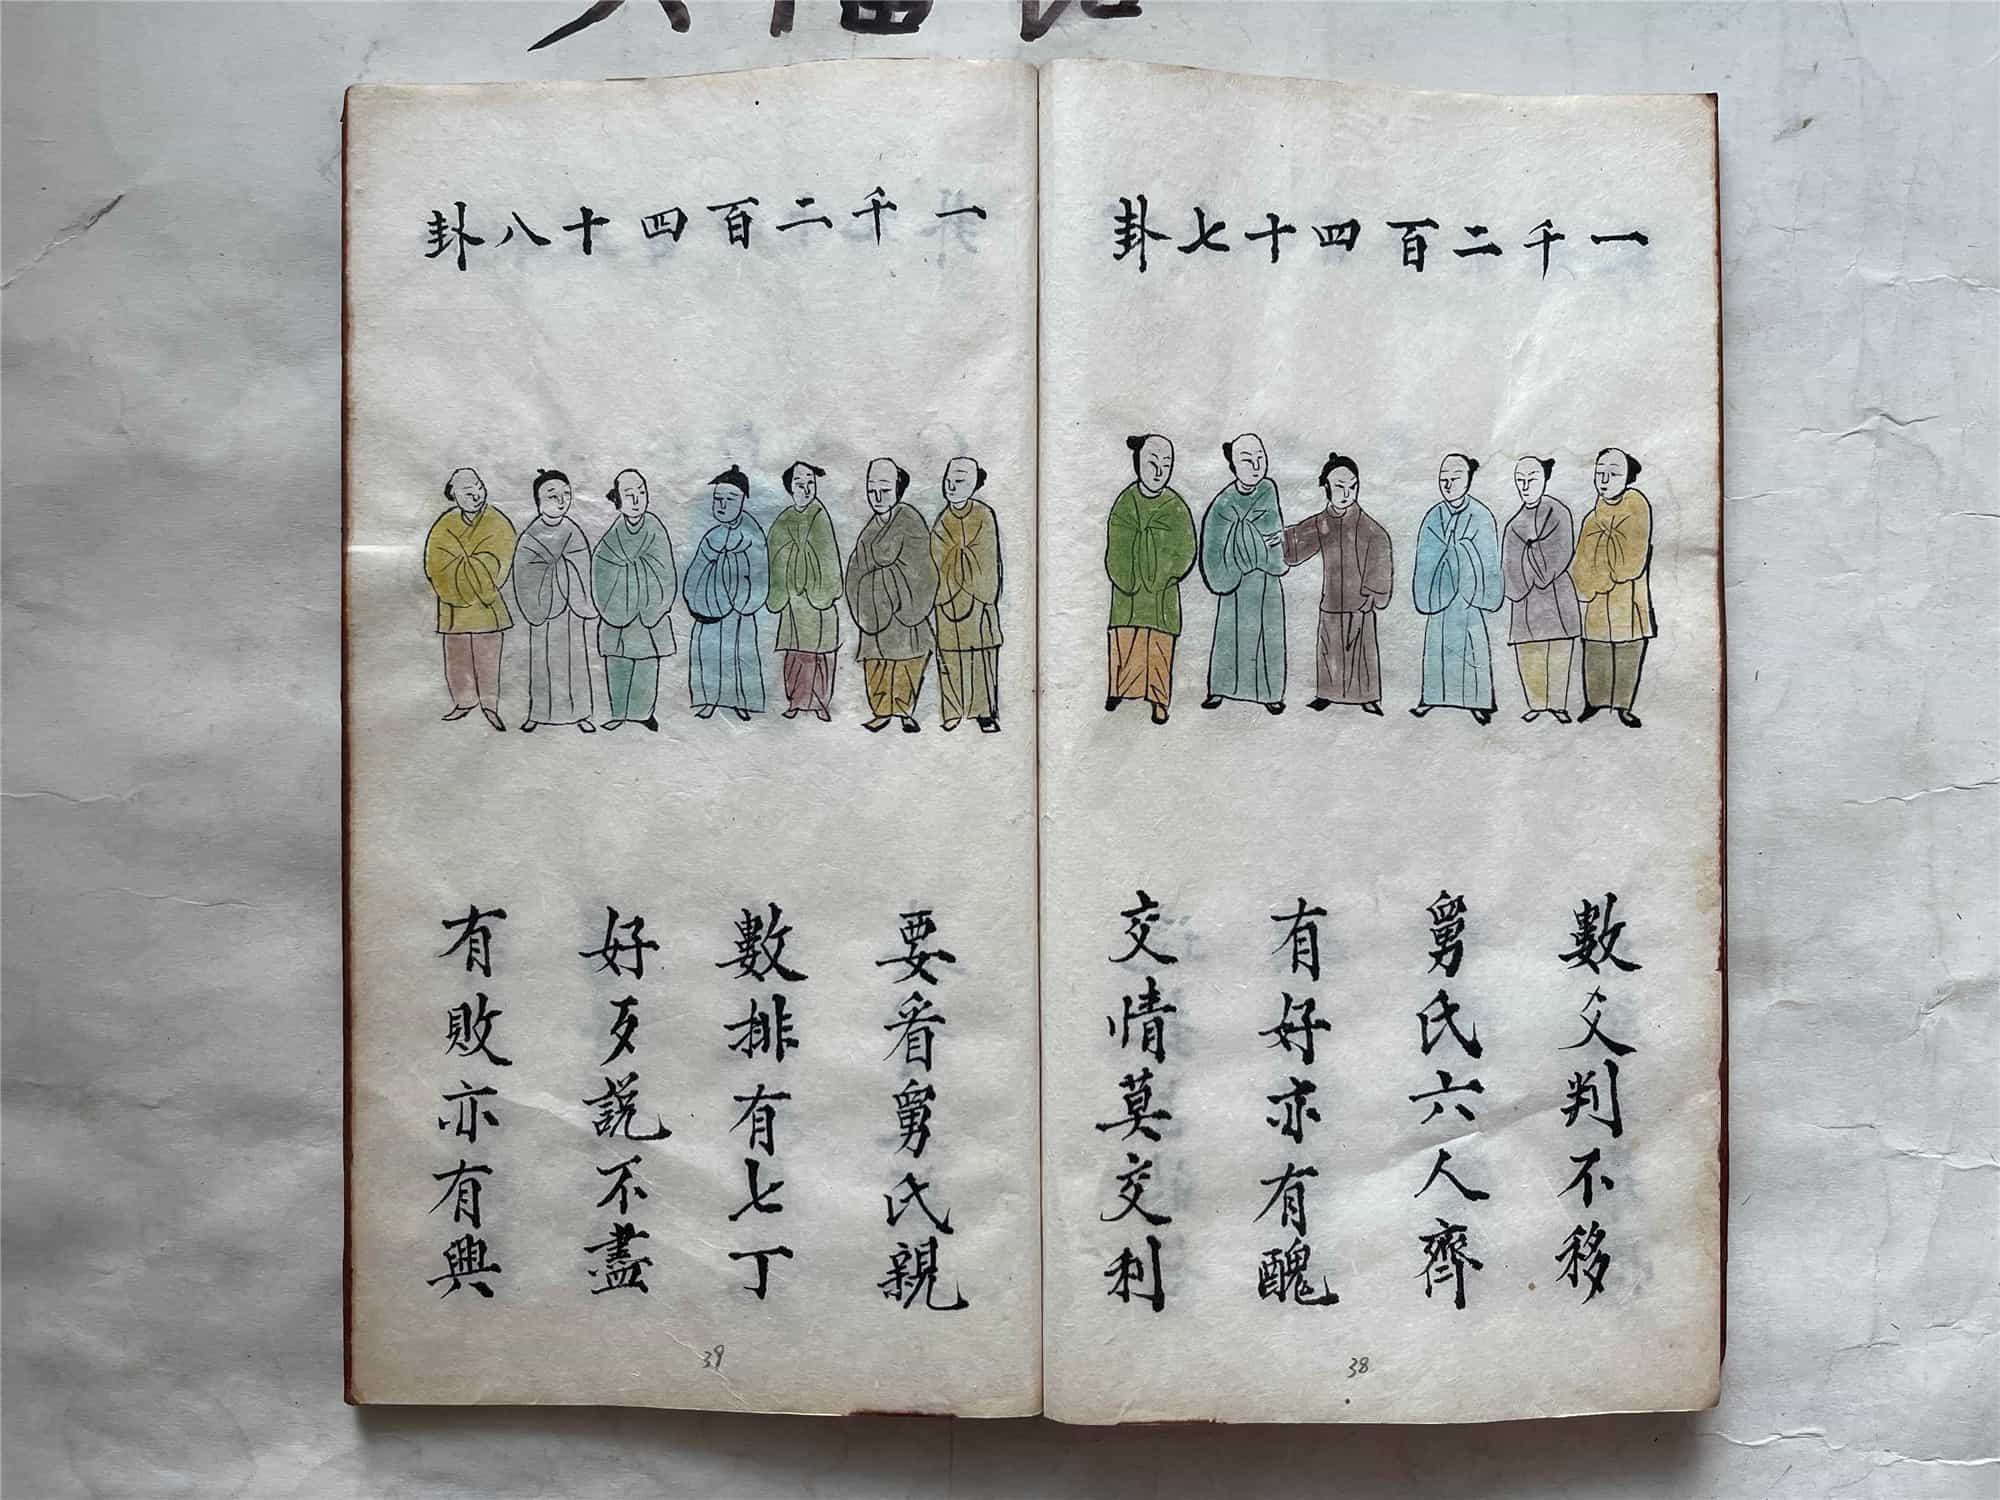 一千二百四十七卦
數爻判不移
舅氏六人齊
有好亦有醜
交情莫交利
38
一千二百四十八卦
要看舅氏親
數排有七丁
好歹說不盡
有敗亦有興
39